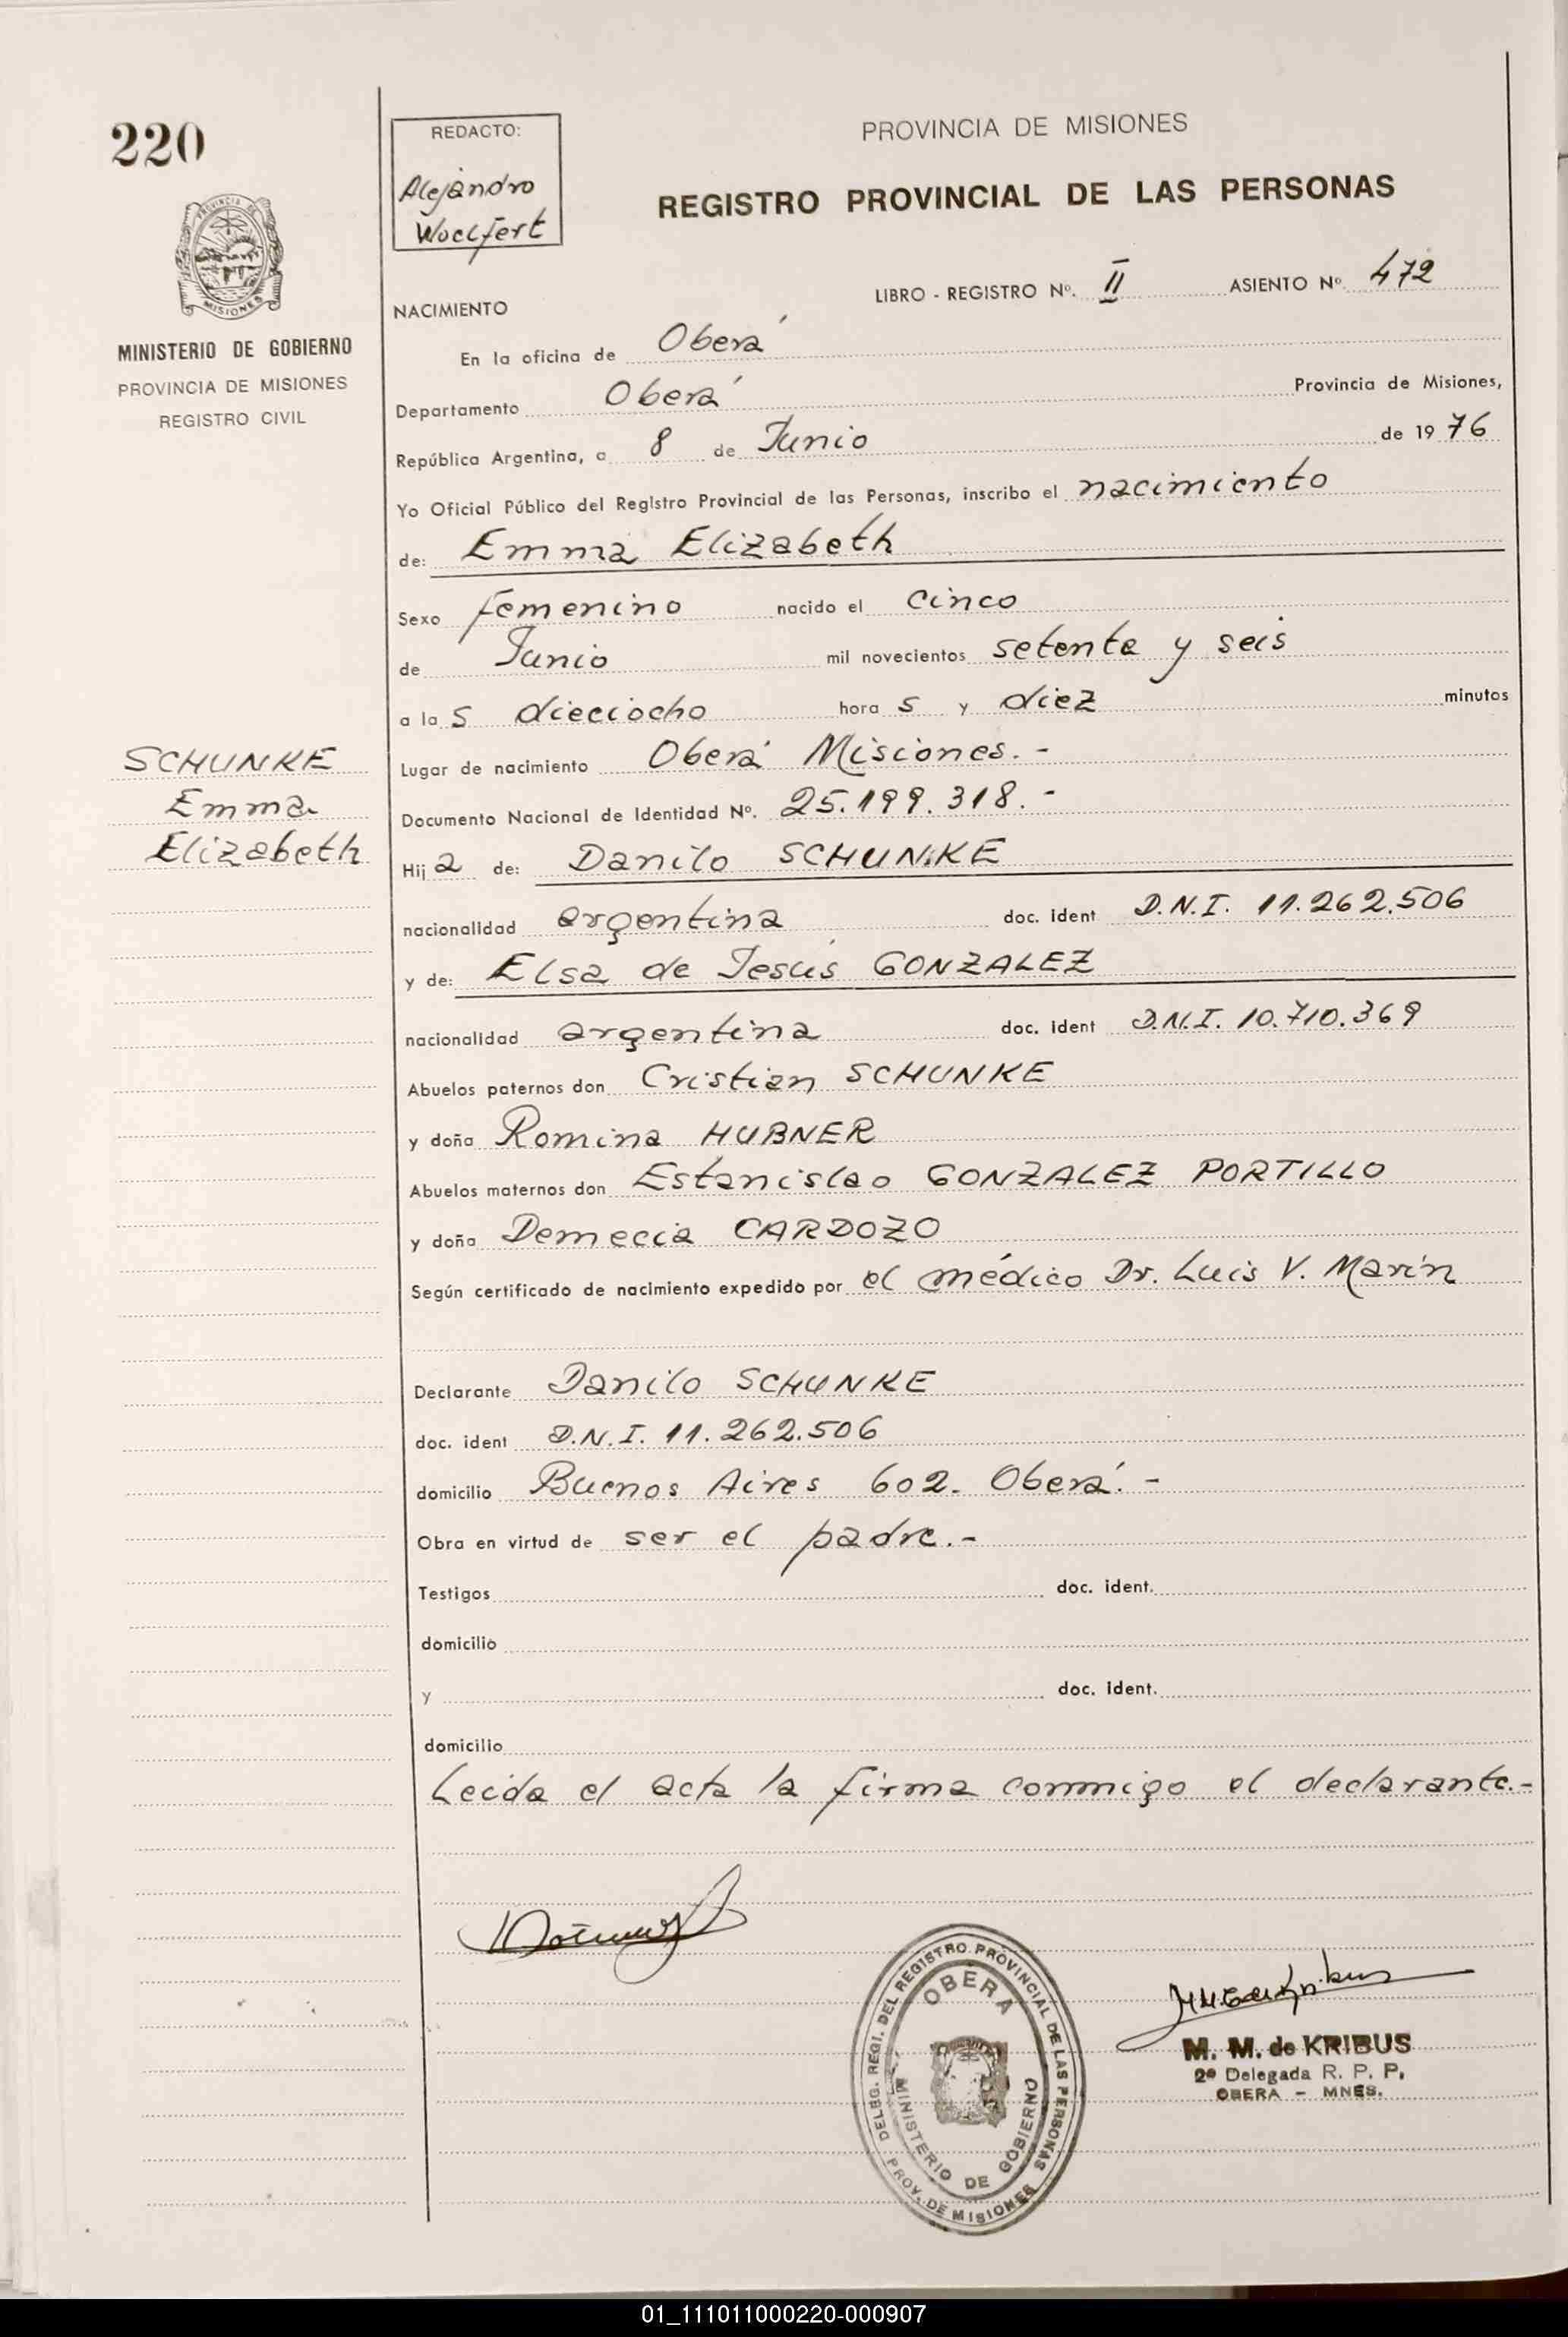 220
PROVINCIA DE MISIONES
MINISTERIO DE GOBIERNO
PROVINCIA DE MISIONES
REGISTRO CIVIL
SCHUNKE
Emma
Elizabeth
REDACTO:
Alejandro
Woelfert
PROVINCIA DE MISIONES
REGISTRO PROVINCIAL DE LAS PERSONAS
LIBRO - REGISTRO Nº. II ASIENTO Nº 472
NACIMIENTO
En la oficina de Oberá
Departamento Oberá Provincia de Misiones,
República Argentina, a 8 de Junio de 1976
Yo Oficial Público del Registro Provincial de las Personas, inscribo el nacimiento
de: Emma Elizabeth
Sexo femenino nacido el cinco
de Junio mil novecientos setenta y seis
a la s dieciocho hora s y diez minutos
Lugar de nacimiento Oberá Misiones.-
Documento Nacional de Identidad Nº. 25.199.318.-
Hij a de: Danilo SCHUNKE
nacionalidad argentina doc. ident D.N.I. 11.262.506
y de: Elsa de Jesús GONZALEZ
nacionalidad argentina doc. ident D.N.I. 10.710.369
Abuelos paternos don Cristian SCHUNKE
y doña Romina HUBNER
Abuelos maternos don Estanislao GONZALEZ PORTILLO
y doña Demecia CARDOZO
Según certificado de nacimiento expedido por el médico Dr. Luis V. Marín
Declarante Danilo SCHUNKE
doc. ident D.N.I. 11.262.506
domicilio Buenos Aires 602. Oberá.-
Obra en virtud de ser el padre.-
Testigos doc. ident.
domicilio
y doc. ident.
domicilio
Leída el acta la firma conmigo el declarante.-
DELEG. REGI. DEL REGISTRO PROVINCIAL DE LAS PERSONAS
OBERA
MINISTERIO DE GOBIERNO
PROV. DE MISIONES
M. M. de KRIBUS
2ª Delegada R. P. P.
OBERA - MNES.
01_111011000220-000907